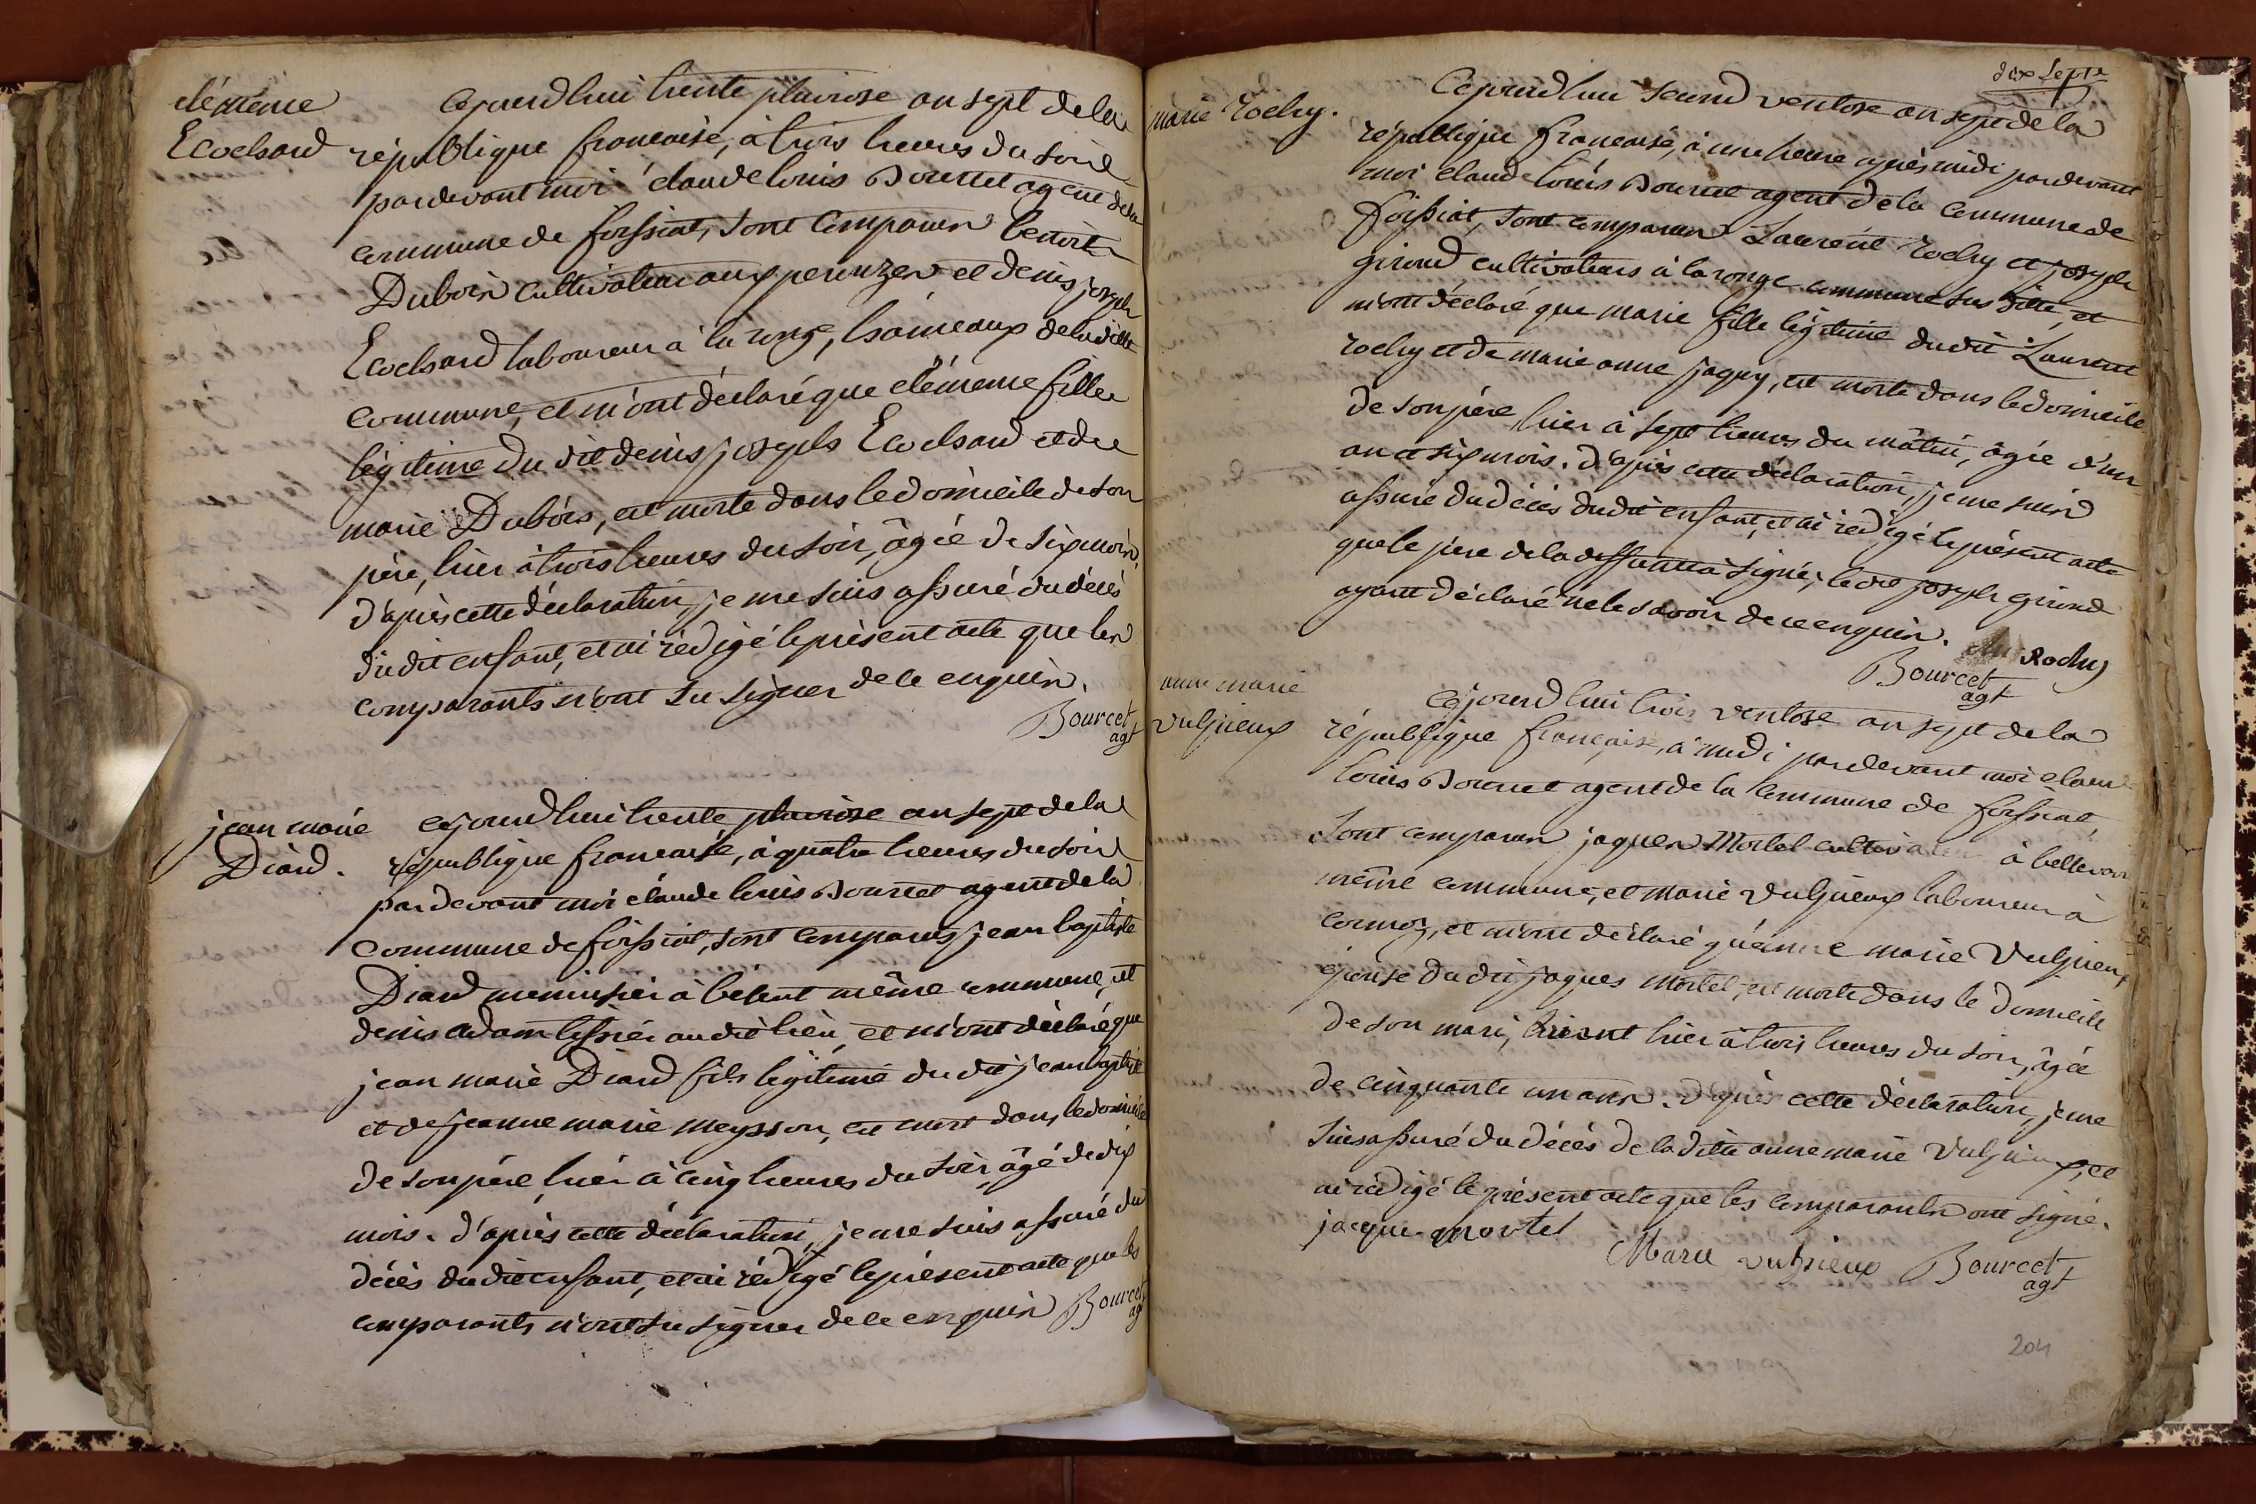 clémence
Ecochard
Cejourdhui trente pluviose an sept de la
république francaise, à trois heures du soir
pardevant moi claude louis Bourcet agent de la
commune de foissiat, sont comparus benoit
Dubois cultivateur aux perouzes et denis joseph
Ecochard laboureur à la ronge, hameaux de la ditte
commune, et m'ont déclaré que clémence fille
légitime du dit denis joseph Ecochard et de
marie Dubois, est morte dans le domicile de son
père, hier à trois heures du soir, âgée de six mois.
d'après cette déclaration, je me suis assuré du décès
du dit enfant, et ai rédigé le présent acte que les
comparants n'ont su signer de ce enquis.
Bourcet
agt
jean marie
Diard.
cejourdhui trente pluviose an sept de la
république francaise, à quatre heures du soir
pardevant moi claude louis Bourcet agent de la
commune de foissiat, sont comparus jean baptiste
Diard menuisier à bétent même commune, et
denis adam tissier au dit lieu, et m'ont déclaré que
jean marie Diard fils légitime du dit jean baptiste
et de jeanne marie meysson, est mort dans le domicile
de son père hier à cinq heures du soir, âgé de dix
mois. d'après cette déclaration, je me suis assuré du
décès du dit enfant, et ai rédigé le présent acte que les
comparants n'ont su signer de ce enquis
Bourcet
agt
dix sept
marie rochy.
Cejourdhui second ventose an sept de la
république francaise, à une heure après midi pardevant
moi claude louis Bourcet agent de la commune de
foissiat, sont comparus Laurent rochy et joseph
giroud cultivateurs à la ronge commune sus ditte, et
m'ont déclaré que marie fille légitime du dit Laurent
rochy et de marie anne jaguy, est morte dans le domicile
de son père hier à sept heures du matin, âgée d'un
an et six mois. d'après cette déclaration, je me suis
assuré du décès du dit enfant, et ai rédigé le présent acte
que le père de la deffunte a signé, le dit joseph giroud
ayant déclaré ne le savoir de ce enquis.
Rochy
Bourcet
agt
anne marie
vulpieux
cejourdhui trois ventose an sept de la
république francaise, à midi pardevant moi claude
louis Bourcet agent de la commune de foissiat,
sont comparus jaques Mortel cultivateur à bellevavre
même commune, et marie vulpieux laboureur à
cormoz, et m'ont déclaré qu'anne marie Vulpieux
épouse du dit jaques mortel, est morte dans le domicile
de son mari, hier à trois heures du soir, âgée
de cinquante un ans. d'après cette déclaration, je me
suis assuré du décès de la ditte anne marie Vulpieux, et
ai rédigé le présent acte que les comparants ont signé.
jacque mortel
Marie vulpieux
Bourcet
agt
204